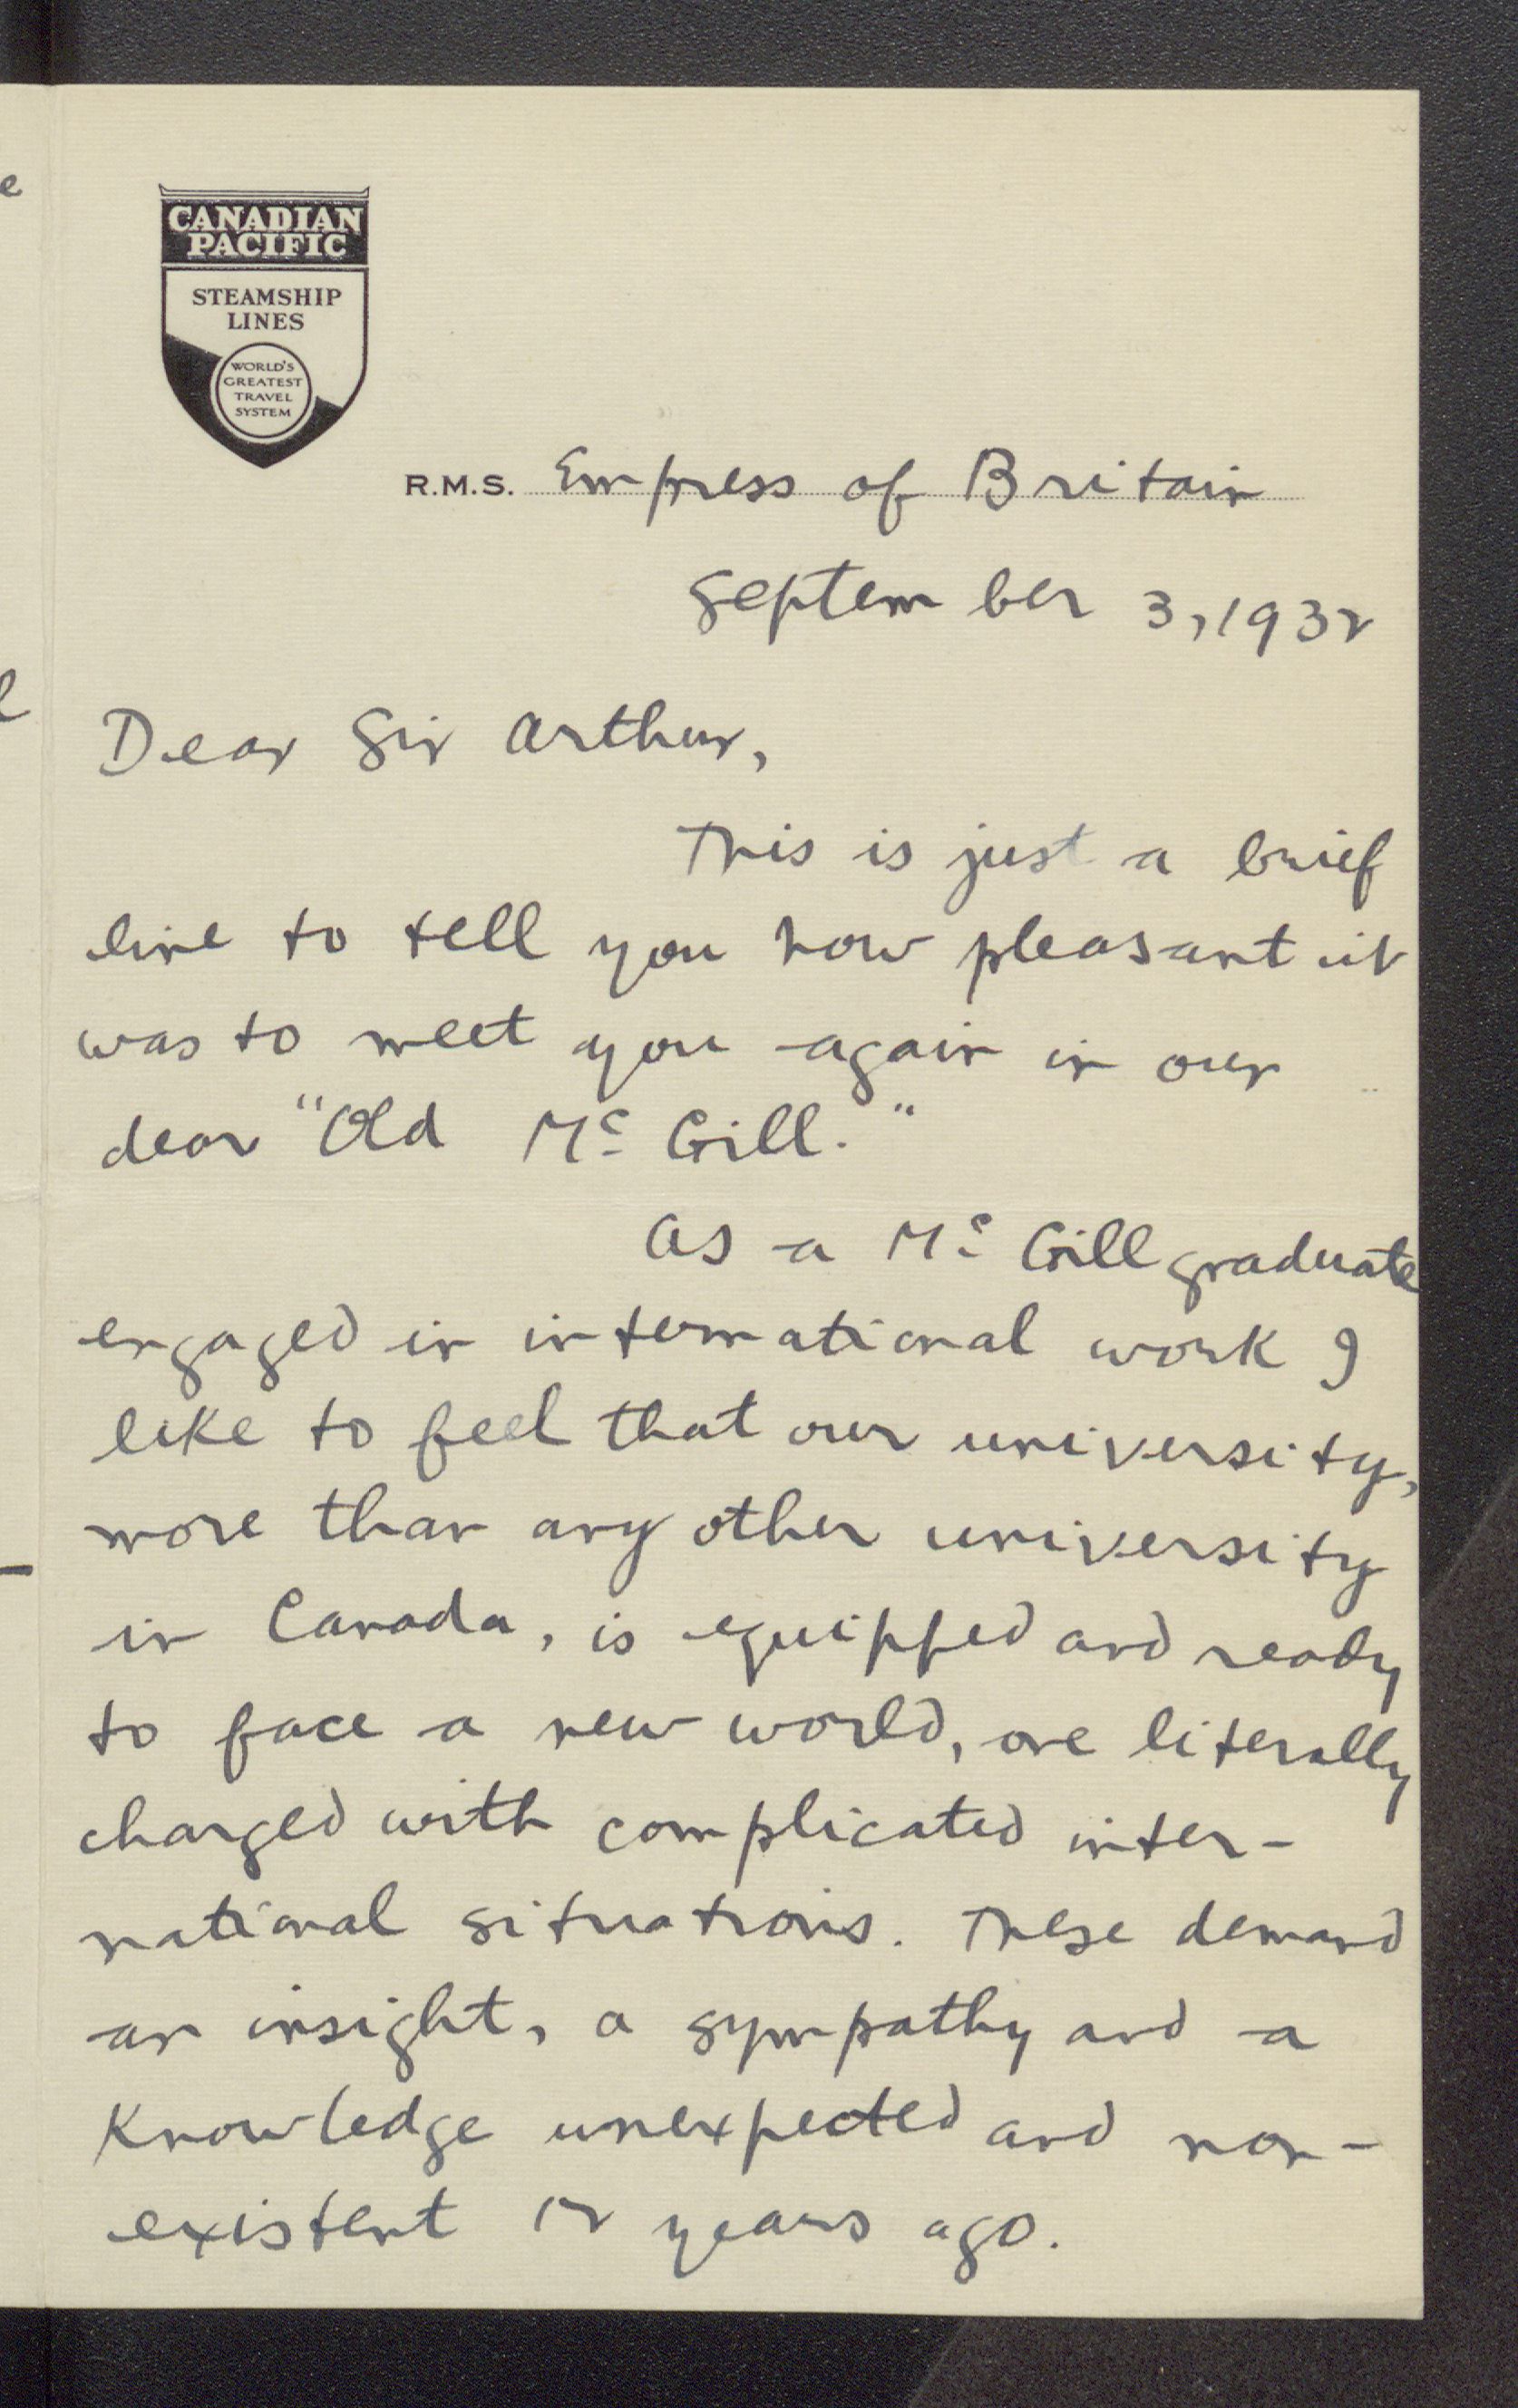 CANADIAN
PACIFIC
STEAMSHIP
LINES
WORLD'S
GREATEST
TRAVEL
SYSTEM
R.M.S. Empress of Britain
September 3, 1932
Dear Sir Arthur,
This is just a brief
line to tell you how pleasant it
was to meet you again in our
dear "Old Mc Gill."
As a Mc Gill graduate
engaged in international work I
like to feel that our university,
more than any other university
in Canada, is equipped and ready
to face a new world, one literally
charged with complicated inter-
national situations. These demand
an insight, a sympathy and a
knowledge unexpected and non-
existent 12 years ago.